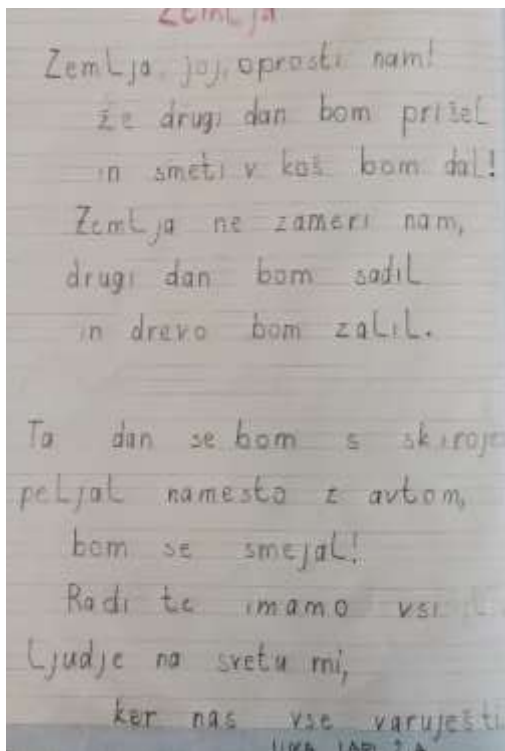 Zemlja
Zemlja, joj, oprosti nam!
že drugi dan bom prišel
in smeti v koš bom dal!
Zemlja ne zameri nam,
drugi dan bom sadil
in drevo bom zalil.
Ta dan se bom s skiroje
peljal namesto z avtom,
bom se smejal!
Radi te imamo vsi
Ljudje na svetu mi,
ker nas vse varuješ ti